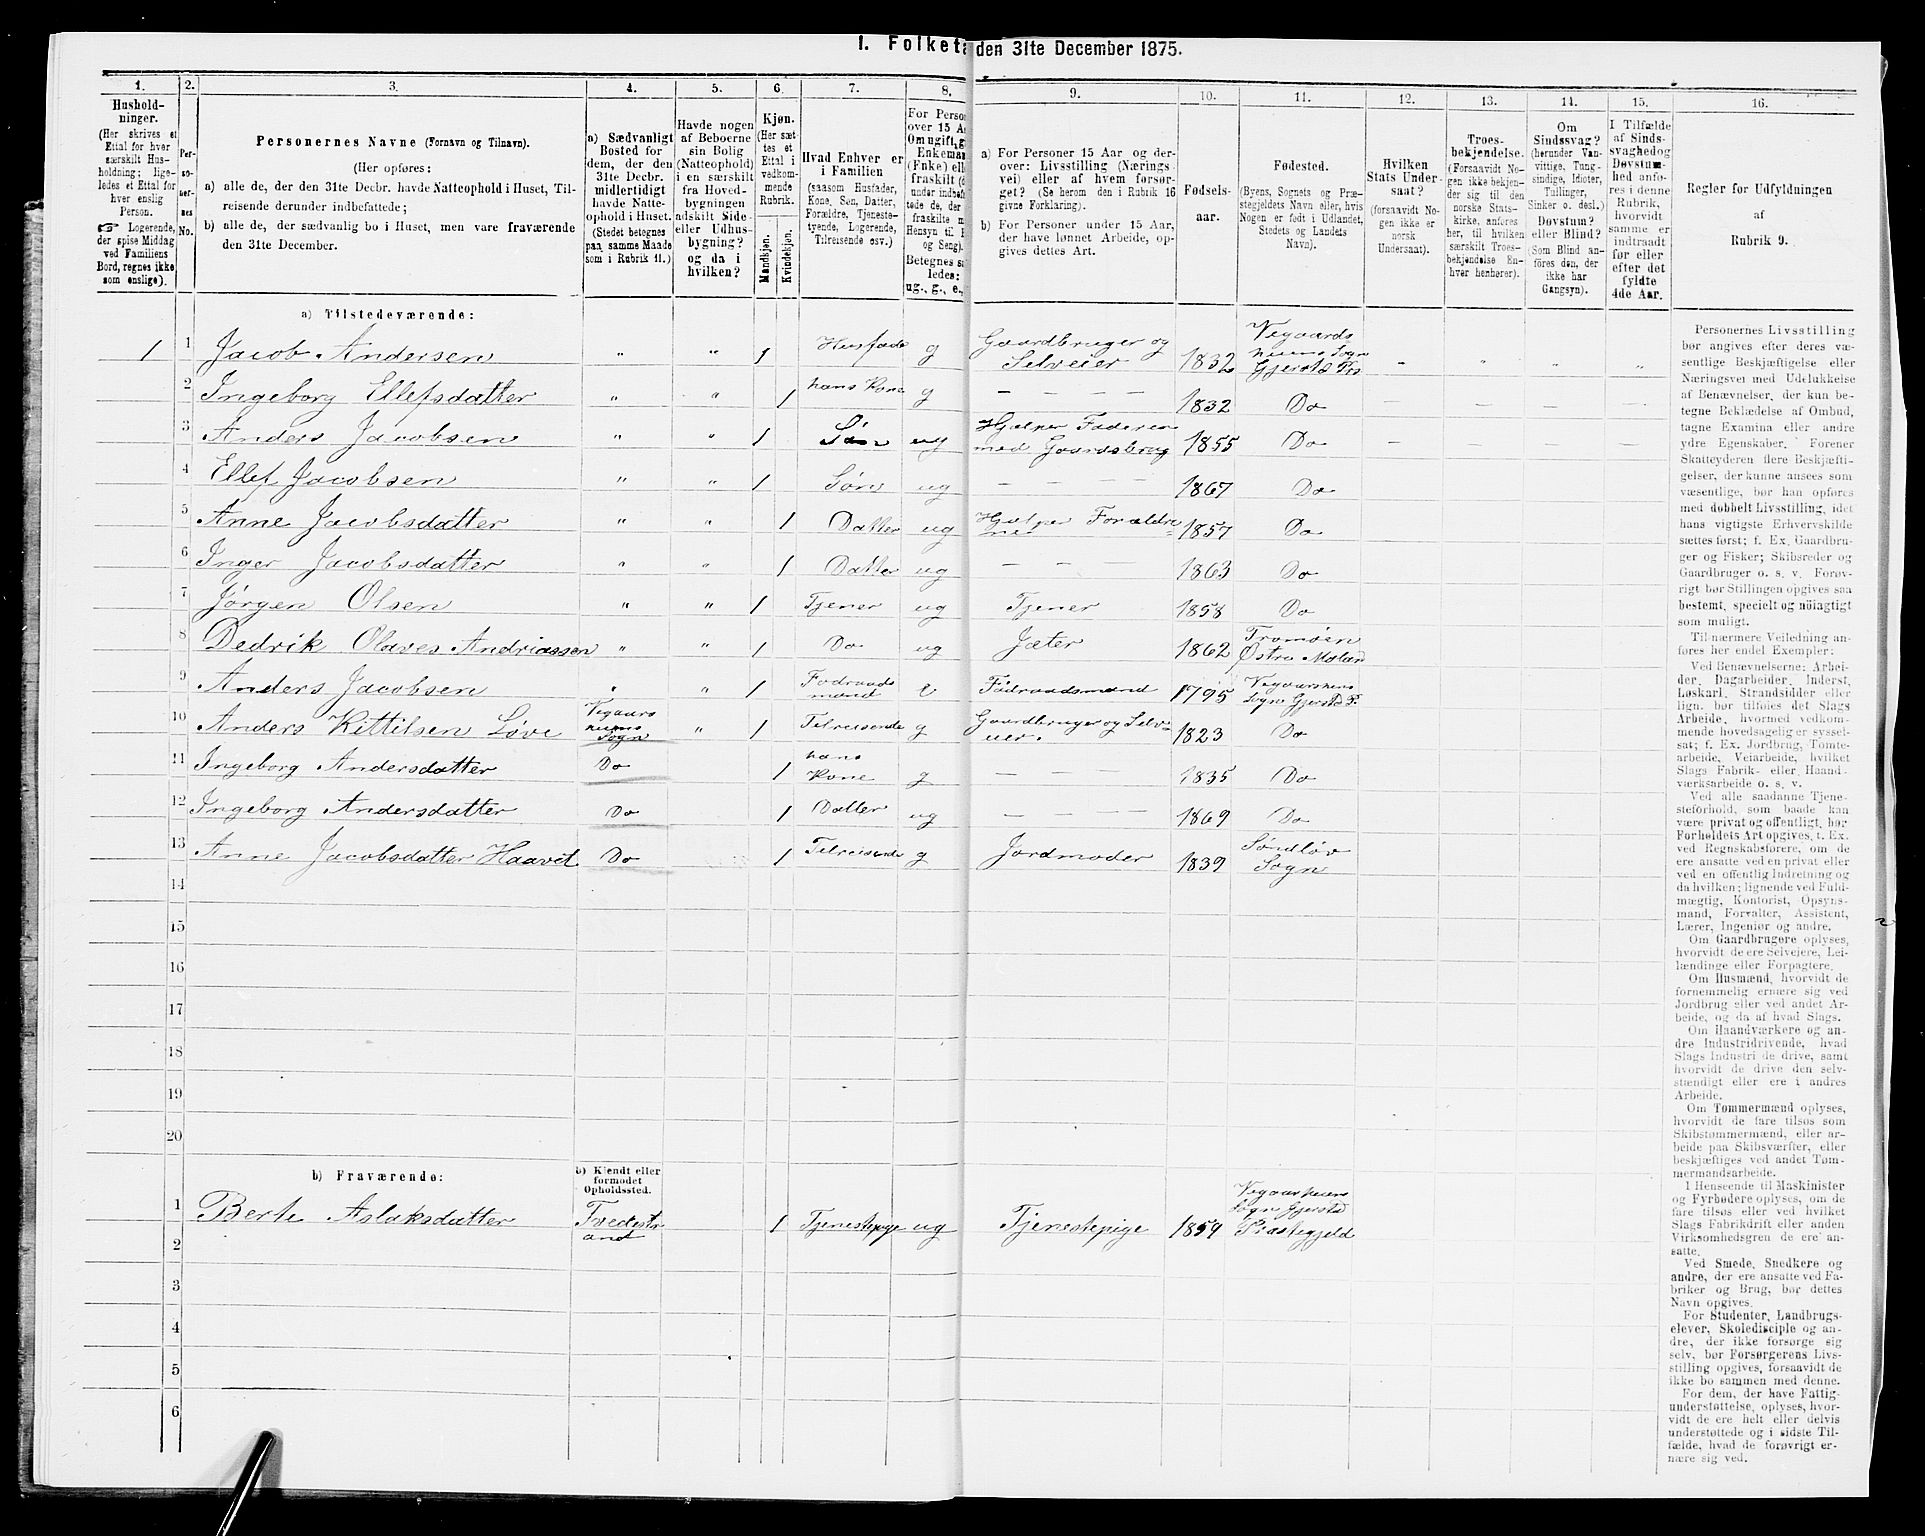 I. Folket den 31te December 1875.
1. 2. 3. 4. 5. 6. 7. 8. 9. 10. 11. 12. 13. 14. 15. 16.
Hushold-
ninger.
(Her skrives et
Ettal for hver
særskilt Hus-
holdning; lige-
ledes et Ettal for
hver enslig
Person.
☞ Logerende,
der spise Middag
ved Familiens
Bord, regnes ikke
som enslige).
Per-
so-
ner-
nes
No.
Personernes Navne (Fornavn og Tilnavn).
(Her opføres:
a) alle de, der den 31te Decbr. havde Natteophold i Huset, Til-
reisende derunder indbefattede;
b) alle de, der sædvanlig bo i Huset, men vare fraværende
den 31te December.
a) Sædvanligt
Bosted for
dem, der den
31te Decbr.
midlertidigt
havde Natte-
ophold i Huset.
(Stedet betegnes
paa samme Maade
som i Rubrik 11.)
Havde nogen
af Beboerne
sin Bolig
(Natteophold)
i en særskilt
fra Hoved-
bygningen
adskilt Side-
eller Udhus-
bygning?
og da i
hvilken?
Kjøn.
(Her sæt-
tes et
Ettal i
vedkom-
mende
Rubrik.
Mandkjøn.
Kvindekjøn.
Hvad Enhver er
i Familien
(saasom Husfader,
Kone, Søn, Datter,
Forældre, Tjeneste-
tyende, Logerende,
Tilreisende osv.)
For Perso
over 15 Aa
Om ugift, g
Enkema
(Enke) el
fraskilt (
under indbef
tede de, der
fraskilte
Hensyn til
og Seng).
Betegnes sa
ledes:
ug., g., e.,
a) For Personer 15 Aar og der-
over: Livsstilling (Nærings-
vei) eller af hvem forsør-
get? (Se herom den i Rubrik 16
givne Forklaring).
b) For Personer under 15 Aar,
der have lønnet Arbeide, op-
gives dettes Art.
Fødsels-
aar.
Fødested.
(Byens, Sognets og Præ-
stegjeldets Navn eller, hvis
Nogen er født i Udlandet,
Stedets og Landets
Navn).
Hvilken
Stats Under-
saat?
(forsaavidt No-
gen ikke er
norsk
Undersaat).
Troes-
bekjendelse.
(Forsaavidt No-
gen ikke bekjen-
der sig til den
norske Stats-
kirke, anføres
her, til hvilken
særskilt Troes-
bekjendelse En-
hver henhører).
Om
Sindssvag?
(herunder Van-
vittige, Tung-
sindige, Idioter,
Tullinger,
Sinker o. desl.)
Døvstum?
eller Blind?
(Som Blind an-
føres den, der
ikke har
Gangsyn).
I Tilfælde
af Sinds-
svaghed og
Døvstum-
hed anfø-
res i denne
Rubrik,
hvorvidt
samme er
indtraadt
før eller
efter det
fyldte
4de Aar.
Regler for Udfyldningen
af
Rubrik 9.
a) Tilstedeværende:
1 1 Jacob Andersen " " 1 Husfade g Gaardbruger og Selveier 1832 Vegaards heiens Sogn Gjerstd Prs - " " "
2 Ingeborg Ellefsdatter " " 1 hans Kone g — — — 1832 Do — — — —
3 Anders Jacobsen " " 1 Søn ug Hjælper Faderen med Gaardsbrug 1855 Do — — — —
4 Ellef Jacobsen " " 1 Søn ug — — — 1867 Do
5 Anne Jacobsdatter " " 1 Datter ug Hjælper Forældre ne 1857 Do
6 Inger Jacobsdatter " " 1 Datter ug — — 1863 Do
7 Jørgen Olsen " " 1 Tjener ug Tjener 1858 Do
8 Dedrik Olaves Andriassen " " 1 Do ug Jæter 1862 Tromøen Østre Moland
9 Anders Jacobsen " " 1 Fødraads mand e Födraadsmand 1795 Vegaarsheiens Sogn Gjerstd P.
10 Anders Kittilsen Løve Vegaars heiens Sogn " 1 Tilreisende g Gaardbruger og Selv eier. 1823 Do
11 Ingeborg Andersdatter Do 1 hans Kone g — — — 1835 Do
12 Ingeborg Andersdatter Do 1 Datter ug — — — 1869 Do
13 Anne Jacobsdatter Haavet Do 1 Tilreisende g Jordmoder 1839 Søndløv Sogn
14
15
16
17
18
19
20
b) Fraværende:
b) Kjendt eller
formodet
Opholdssted.
1 Berte Aslaksdatter Tvedestr and 1 Tjenestepige ug Tjenestepige 1859 Vegaarsheiens Sogn Gjerstd Præstegjeld
2
3
4
5
6
Personernes Livsstilling
bør angives efter deres væ-
sentlige Beskjæftigelse eller
Næringsvei med Udelukkelse
af Benævnelser, der kun be-
tegne Beklædelse af Ombud,
tagne Examina eller andre
ydre Egenskaber. Forener
Skatteyderen flere Beskjæfti-
gelser, der kunne ansees som
væsentlige, bør han opføres
med dobbelt Livsstilling, idet
hans vigtigste Erhvervskilde
sættes først; f. Ex. Gaardbru-
ger og Fisker; Skibsreder og
Gaardbruger o. s. v. Forøv-
rigt bør Stillingen opgives saa
bestemt, specielt og nøiagtigt
som muligt.
Til nærmere Veiledning an-
føres her endel Exempler:
Ved Benævnelserne: Arbei-
der, Dagarbeider, Inderst,
Løskarl, Strandsidder eller
lign. bør tilføies det Slags
Arbeide, hvormed vedkom-
mende hovedsagelig er syssel-
sat; f. Ex. Jordbrug, Tomte-
arbeide, Veiarbeide, hvilket
Slags Fabrik- eller Haand-
værksarbeide o. s. v.
Ved alle saadanne Tjene-
steforhold, som baade kan
være privat og offentligt, bør
Forholdets Art opgives, f. Ex.
ved Regnskabsførere, om de
ere ansatte ved en privat eller
ved en offentlig Indretning og
da hvilken; lignende ved Fuld-
mægtig, Kontorist, Opsyns-
mand, Forvalter, Assistent,
Lærer, Ingeniør og andre.
Om Gaardbrugere oplyses,
hvorvidt de ere Selveiere, Lei-
lændinge eller Forpagtere.
Om Husmænd, hvorvidt de
fornemmelig ernære sig ved
Jordbrug eller ved andet Ar-
beide, og da af hvad Slags.
Om Haandværkere og an-
dre Industridrivende, hvad
Slags Industri de drive, samt
hvorvidt de drive den selv-
stændigt eller ere i andres
Arbeide.
Om Tømmermænd oplyses,
hvorvidt de fare tilsøs som
Skibstømmermænd, eller ar-
beide paa Skibsværfter, eller
beskjæftiges ved andet Tøm-
mermandsarbeide.
I Henseende til Maskinister
og Fyrbødere oplyses, om de
fare tilsøs eller ved hvilket
Slags Fabrikdrift eller anden
Virksomhedsgren de ere an-
satte.
Ved Smede, Snedkere og
andre, der ere ansatte ved Fa-
briker og Brug, bør dettes
Navn opgives.
For Studenter, Landbrugs-
elever, Skoledisciple og an-
dre, der ikke forsørge sig
selv, bør Forsørgerens Livs-
stilling opgives, forsaavidt de
ikke bo sammen med denne.
For dem, der have Fattig-
understøttelse, oplyses, hvor-
vidt de ere helt eller delvis
understøttede og i sidste Til-
fælde, hvad de forøvrigt er-
nære sig ved.